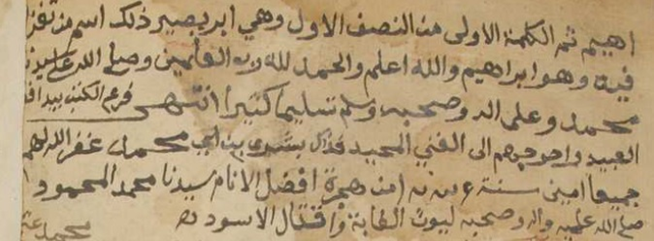 اهيم ثم الكلمة الاولى من النصف الاول وهي ابر يصير ذلك اسم من
فيه وهو ابراهيم والله اعلم والحمد لله رب العالمين وصلى الله على سيدنا
محمد وعلى اله وصحبه وسلم تسليما كثيرا انتهى
العبيد واحوجهم الى الغني المجيد بن ابي محمد غفر الله لهم
جميعا امين سنة من هجرة افضل الانام سيدنا محمد المحمود
صلى الله عليه واله وصحبه ليوث الغابة واقتال الاسود
محمد